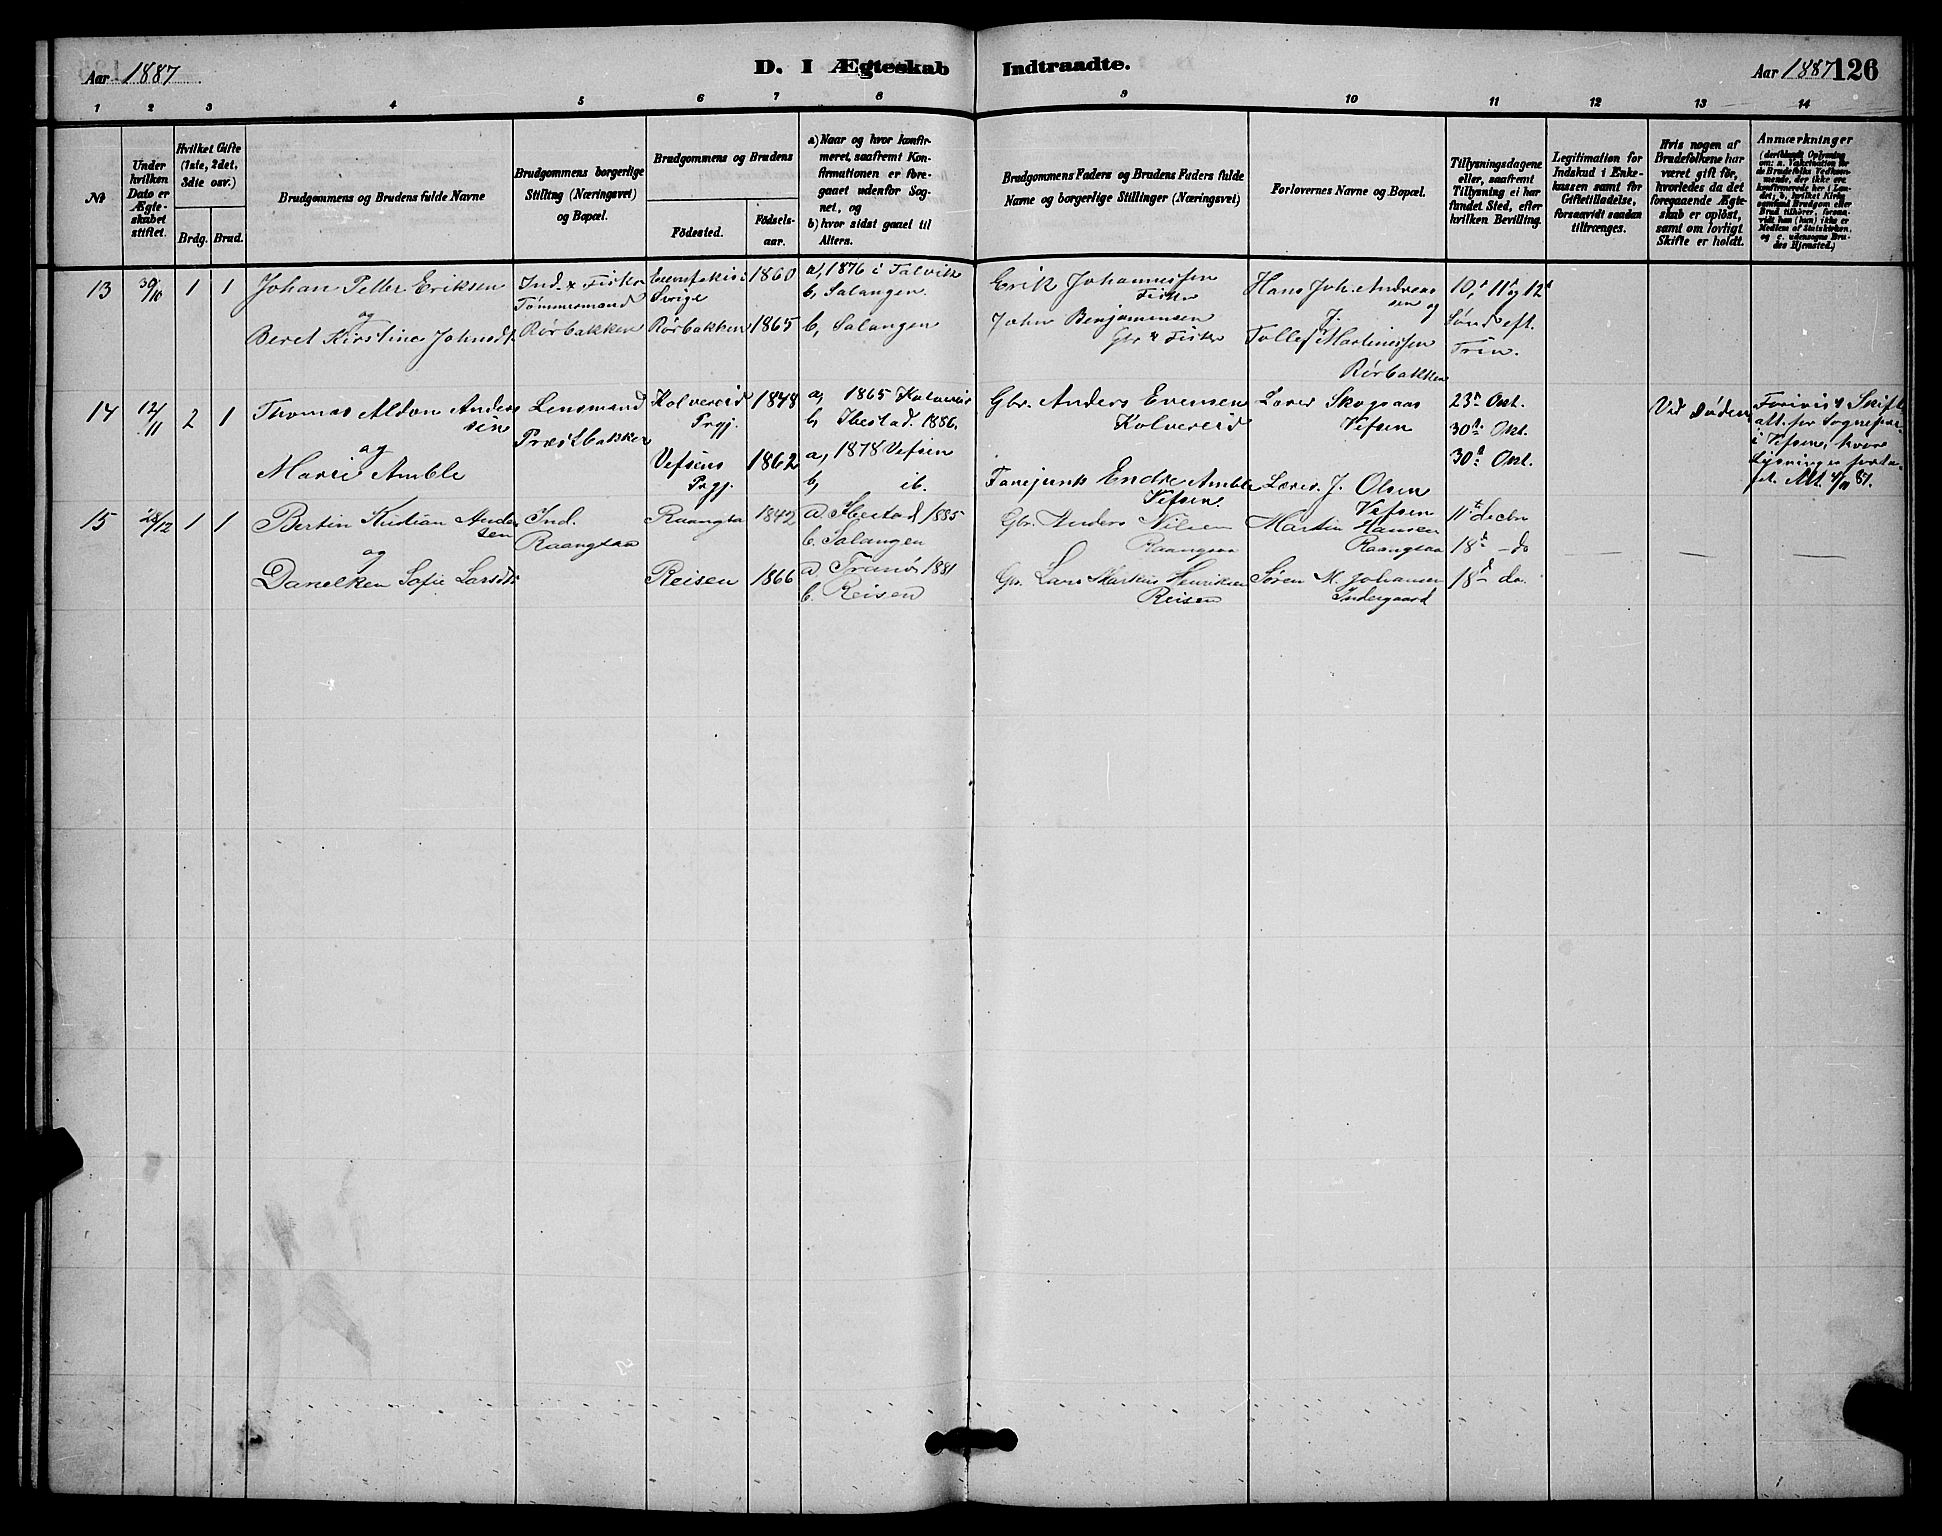 Aar 1887
D. I Ægteskab Indtraadte.
Aar 1887 126
1 2 3 4 5 6 7 8 9 10 11 12 13 14
№
Under hvilken Dato er Ægteskabet stiftet.
Hvilket Gifte (1ste, 2det, 3die osv.)
Brdg. Brud.
Brudgommens og Brudens fulde Navne
Brudgommens borgerlige Stilling (Næringsvei) og Bopæl.
Brudgommens og Brudens
Födested.
Födselsaar.
a) Naar og hvor konfirmeret, saafremt Konfirmationen er foregaaet udenfor Sognet, og
b) hvor sidst gaaet til Alters.
Brudgommens Faders og Brudens Faders fulde Navne og borgerlige Stillinger (Næringsvei)
Forlovernes Navne og Bopæl.
Tillysningsdagene eller, saafremt Tillysning ei har fundet Sted, efter hvilken Bevilling.
Legitimation for Indskud i Enkekassen samt for Giftetilladelse, forsaavidt saadan tiltrænges.
Hvis nogen af Brudefolkene har været gift för, hvorledes da det foregaaende Ægteskab er oplöst, samt om lovligt Skifte er holdt.
Anmærkninger
13 30/10 1 1
Johan Petter Eriksen
og
Beret Kirstine Johnsdt.
Ind. & Fisker
Tømmermand
Rørbakken
Sverige
Rørbakken
1860
1865
a, 1876 i Talvik
b, Salangen.
b, Salangen
Erik Johannessen
Fisker
John Benjaminsen
Gbr & Fisker
Hans Joh. Andreas
sen og
Tollef Martinussen
Rørbakken
10, 11 og 12
Sønd eft.
Trin.
14 12/11 2 1
Thomas Aldon Anders
sen
og
Marie Amble
Lensmand
Præstbakken
Kolvereid
Prgj.
Vefsens
Prgj.
1848
1862
a, 1865 Kolvereid
b, Ibestad. 1886.
a, 1878 Vefsen
b, ib.
Gbr. Anders Evensen
Kolvereid
Fanejunk Endre Amble
Vefsen.
Lærer Skogsaas
Vefsen
Lærer J. Olsen
Vefsen
23de Okt.
30te Okt.
30te Okt.
Ved Døden
Forevis. Skifte
att. fr Sognepr
i Vefsen, hvor
Lysninger foreta
15 28/12 1 1
Bertin Kristian Ander
sen
og
Danelken Sofie Larsdt.
Ind.
Raangsaa
Raangsa
Reisen
1842
1866
a Ibestad 1885
b. Salangen
a Tranø 1881
b. Reisen
Gbr. Anders Nilsen
Raangsaa
Gbr. Lars Markus Henriksen
Reisen
Martin Hansen
Raangsaa
Søren M. Johansen
Indergaard
11te Decbr
18de - do
18de - do.